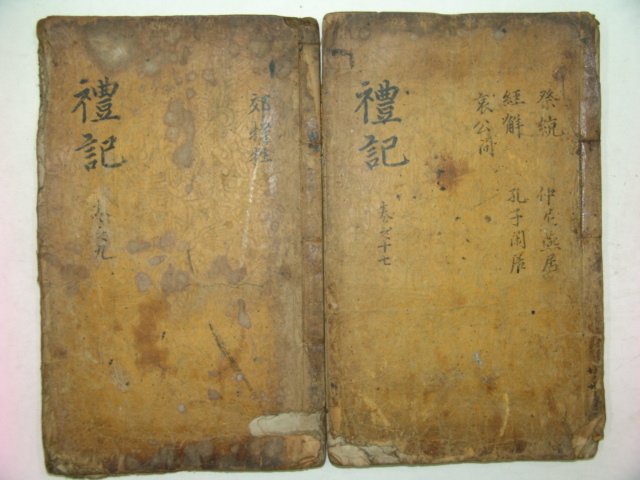 郊特牲
禮記
卷之九
祭統 仲尼燕居
經解 孔子閒居
哀公問
禮記
卷之十七